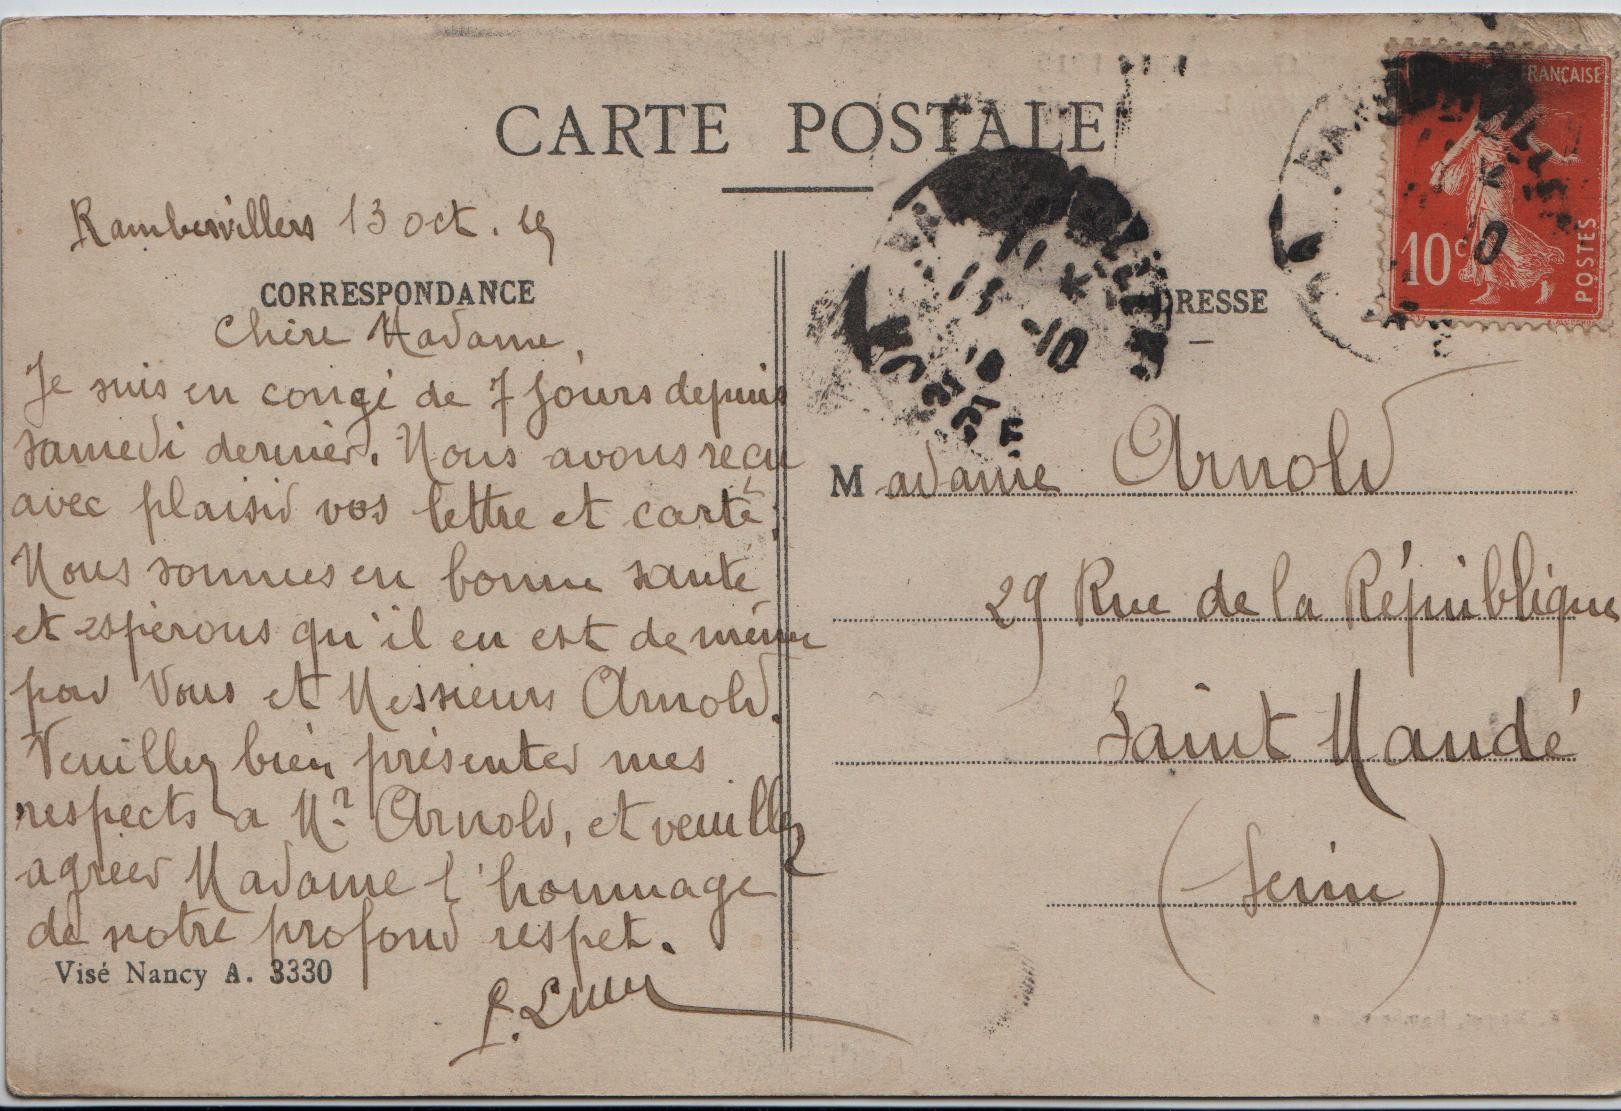 CARTE POSTALE
Rambervillers 13 oct. 19
CORRESPONDANCE
Chère Madame,
Je suis en congé de 7 jours depuis
samedi dernier. Nous avons reçu
avec plaisir vos lettre et carte.
Nous sommes en bonne santé
et espérons qu'il en est de même
par Vous et Messieurs Arnold.
Veuillez bien présenter mes
respects a Mr Arnold, et veuillez
agréer Madame l'hommage
de notre profond respet.
Visé Nancy A. 3330
FRANÇAISE
10c
POSTES
ADRESSE
Madame Arnold
29 Rue de la République
Saint Mandé
(Seine)